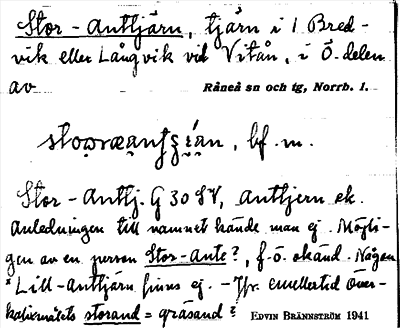 Stor-Anttjärn, tjärn i 1 Bred-
vik eller Långvik vid Vitån, i Ö. delen
av Råneå sn och tg, Norrb. l.
bf. m.
Stor-Anttj. G 30 SV, Anttjern ek.
Anledningen till namnet kände man ej. Möjli-
gen av en person Stor-Ante?, f.ö. okänd. Någon
"Lill-Anttjärn finns ej. - Jfr. emellertid över-
kalixmålets storand = gräsand?
EDVIN BRÄNNSTRÖM 1941